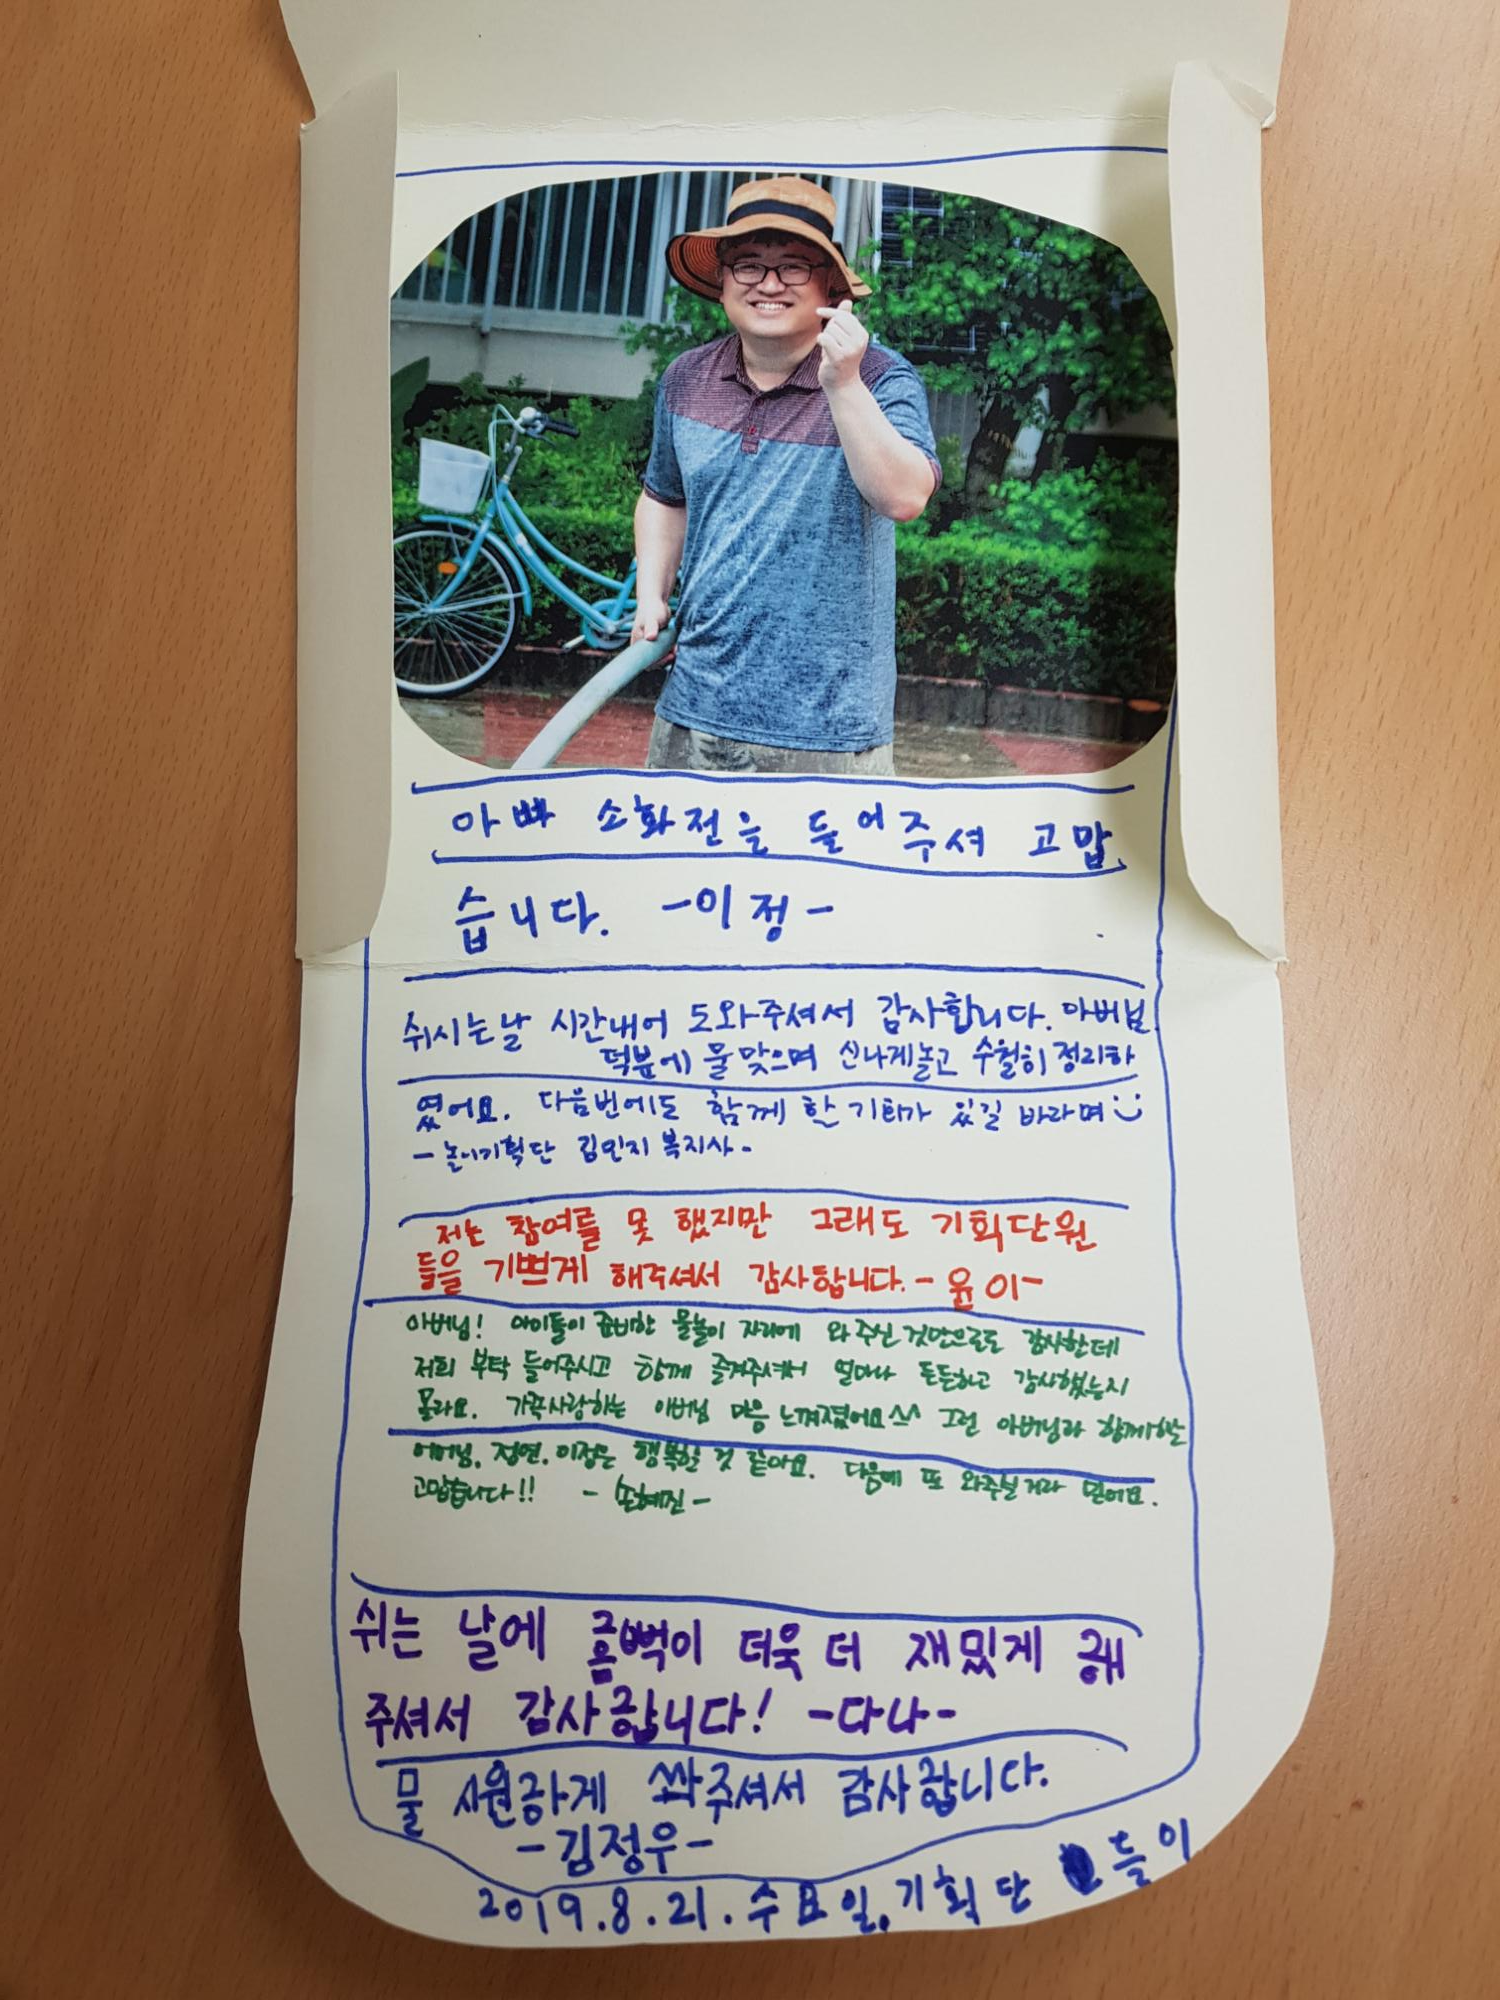 아빠 소화전을 들어주셔 고맙
습니다. -이정-
쉬시는날 시간내어 도와주셔서 감사합니다. 아버님
덕분에 물맞으며 신나게놀고 수월히 정리하
였어요. 다음번에도 함께 할 기회가 있길 바라며
- 놀이기획단 김민지 복지사 -
저는 참여를 못 했지만 그래도 기획단원
들을 기쁘게 해주셔서 감사합니다. - 윤이-
아버님! 아이들이 준비한 물놀이 자리에 와주신것만으로도 감사한데
저희 부탁 들어주시고 함께 즐겨주셔서 얼마나 든든하고 감사했는지
몰라요. 가족사랑하는 아버님 마음 느껴졌어요^^ 그런 아버님과 함께하는
어머님, 정연, 이정은 행복할 것 같아요. 다음에 또 와주실거라 믿어요.
고맙습니다!! - 손혜진 -
쉬는 날에 흠뻑이 더욱 더 재밌게 해
주셔서 감사합니다! -다나-
물 시원하게 쏴주셔서 감사합니다.
-김정우-
2019.8.21. 수요일, 기획단 들이